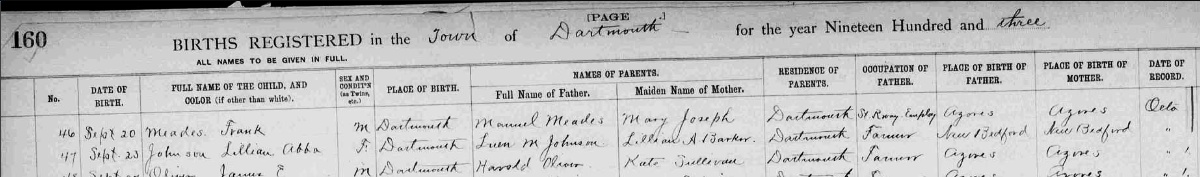 [PAGE .]
160
BIRTHS REGISTERED in the Town of Dartmouth for the year Nineteen Hundred and three
ALL NAMES TO BE GIVEN IN FULL.
No. DATE OF BIRTH. FULL NAME OF THE CHILD, AND COLOR (if other than white). SEX AND CONDIT'N (as Twins, etc.) PLACE OF BIRTH. NAMES OF PARENTS. Full Name of Father. Maiden Name of Mother. RESIDENCE OF PARENTS. OCCUPATION OF FATHER. PLACE OF BIRTH OF FATHER. PLACE OF BIRTH OF MOTHER. DATE OF RECORD.
46 Sept 20 Meades Frank M Dartmouth Manuel Meades Mary Joseph Dartmouth St. Rway Employ Azores Azores Octo
47 Sept. 23 Johnson Lillian Abba F. Dartmouth M Johnson Lillian A Barker. Dartmouth Farmer New Bedford New Bedford "
Oliver James E M Dartmouth Harold Oliver Kate Sullevan Dartmouth Farmer Azores Azores "